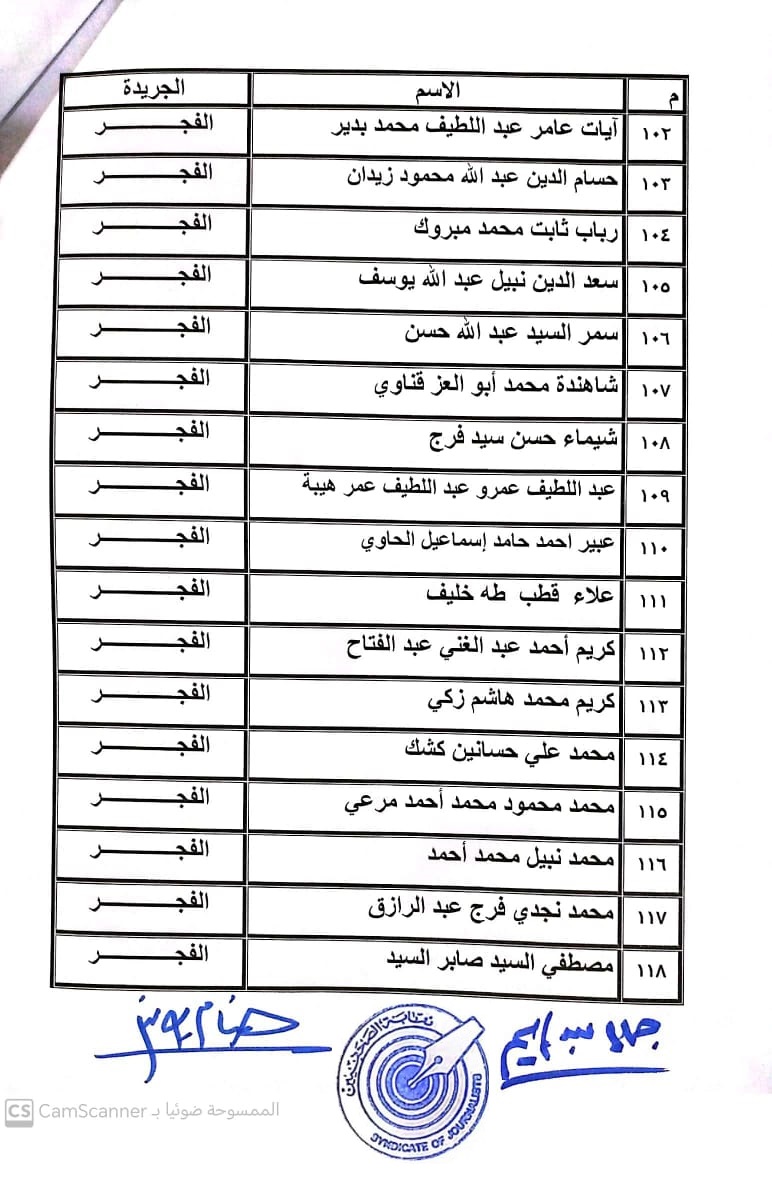 م الاسم الجريدة
١٠٢ آيات عامر عبد اللطيف محمد بدير الفجـــــــر
١٠٣ حسام الدين عبد الله محمود زيدان الفجـــــــر
١٠٤ رباب ثابت محمد مبروك الفجـــــــر
١٠٥ سعد الدين نبيل عبد الله يوسف الفجـــــــر
١٠٦ سمر السيد عبد الله حسن الفجـــــــر
١٠٧ شاهندة محمد أبو العز قناوي الفجـــــــر
١٠٨ شيماء حسن سيد فرج الفجـــــــر
١٠٩ عبد اللطيف عمرو عبد اللطيف عمر هيبة الفجـــــــر
١١٠ عبير احمد حامد إسماعيل الحاوي الفجـــــــر
١١١ علاء قطب طه خليف الفجـــــــر
١١٢ كريم أحمد عبد الغني عبد الفتاح الفجـــــــر
١١٣ كريم محمد هاشم زكي الفجـــــــر
١١٤ محمد علي حسانين كشك الفجـــــــر
١١٥ محمد محمود محمد أحمد مرعي الفجـــــــر
١١٦ محمد نبيل محمد أحمد الفجـــــــر
١١٧ محمد نجدي فرج عبد الرازق الفجـــــــر
١١٨ مصطفي السيد صابر السيد الفجـــــــر
نقابة الصحفيين
SYNDICATE OF JOURNALISTS
الممسوحة ضوئيا بـ CamScanner
CS